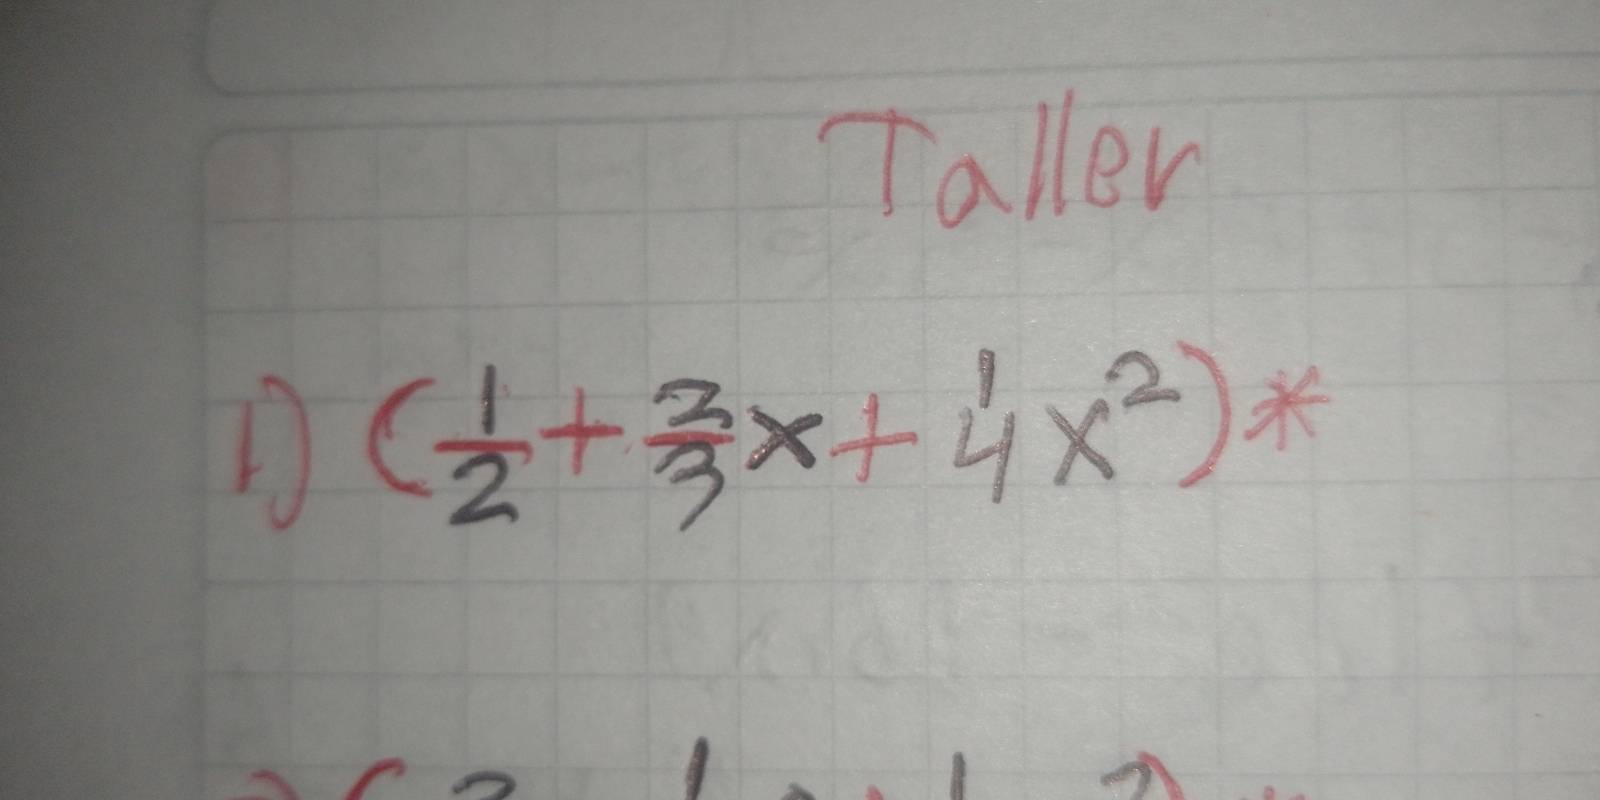 Taller
1) (1/2 + 2/3 x + 1/4 x²) *